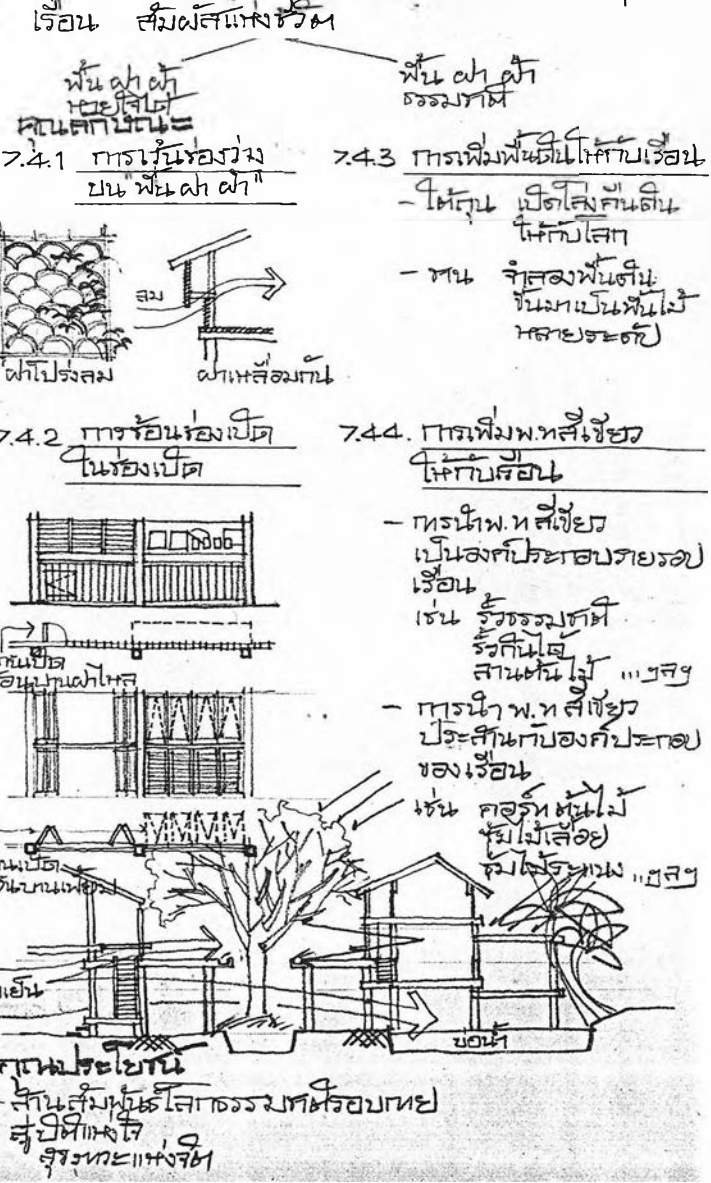 เรือน สัมผัสแห่งชีวิต
พื้น ฝา ฟ้า
หายใจได้
พื้น ฝา ฟ้า
ธรรมชาติ
คุณลักษณะ
7.4.1 การเว้นช่องว่าง
บน "พื้น ฝา ฟ้า"
ลม
ฝาโปร่งลม
ฝาเหลื่อมกัน
7.4.2 การซ้อนช่องเปิด
ในช่องเปิด
บานเปิด
ซ้อนบานฝาไหล
บานเปิด
บานเฟี้ยม
7.4.3 การเพิ่มพื้นดินให้กับเรือน
- ใต้ถุน เปิดโล่งคืนดิน
ให้กับโลก
- ชาน จำลองพื้นดิน
ขึ้นมาเป็นพื้นไม้
หลายระดับ
7.44. การเพิ่มพ.ทสีเขียว
ให้กับเรือน
- การนำพ.ทสีเขียว
เป็นองค์ประกอบรายรอบ
เรือน
เช่น รั้วธรรมชาติ
รั้วกินได้
ลานต้นไม้ ...ฯลฯ
- การนำ พ.ทสีเขียว
ประสานกับองค์ประกอบ
ของเรือน
เช่น คอร์ทต้นไม้
ซุ้มไม้เลื้อย
ซุ้มไม้ระแนง ...ฯลฯ
เย็น
บ่อน้ำ
คุณประโยชน์
- สานสัมพันธ์โลกธรรมชาติรอบกาย
สู่ปิติแห่งใจ
สุขภาวะแห่งจิต